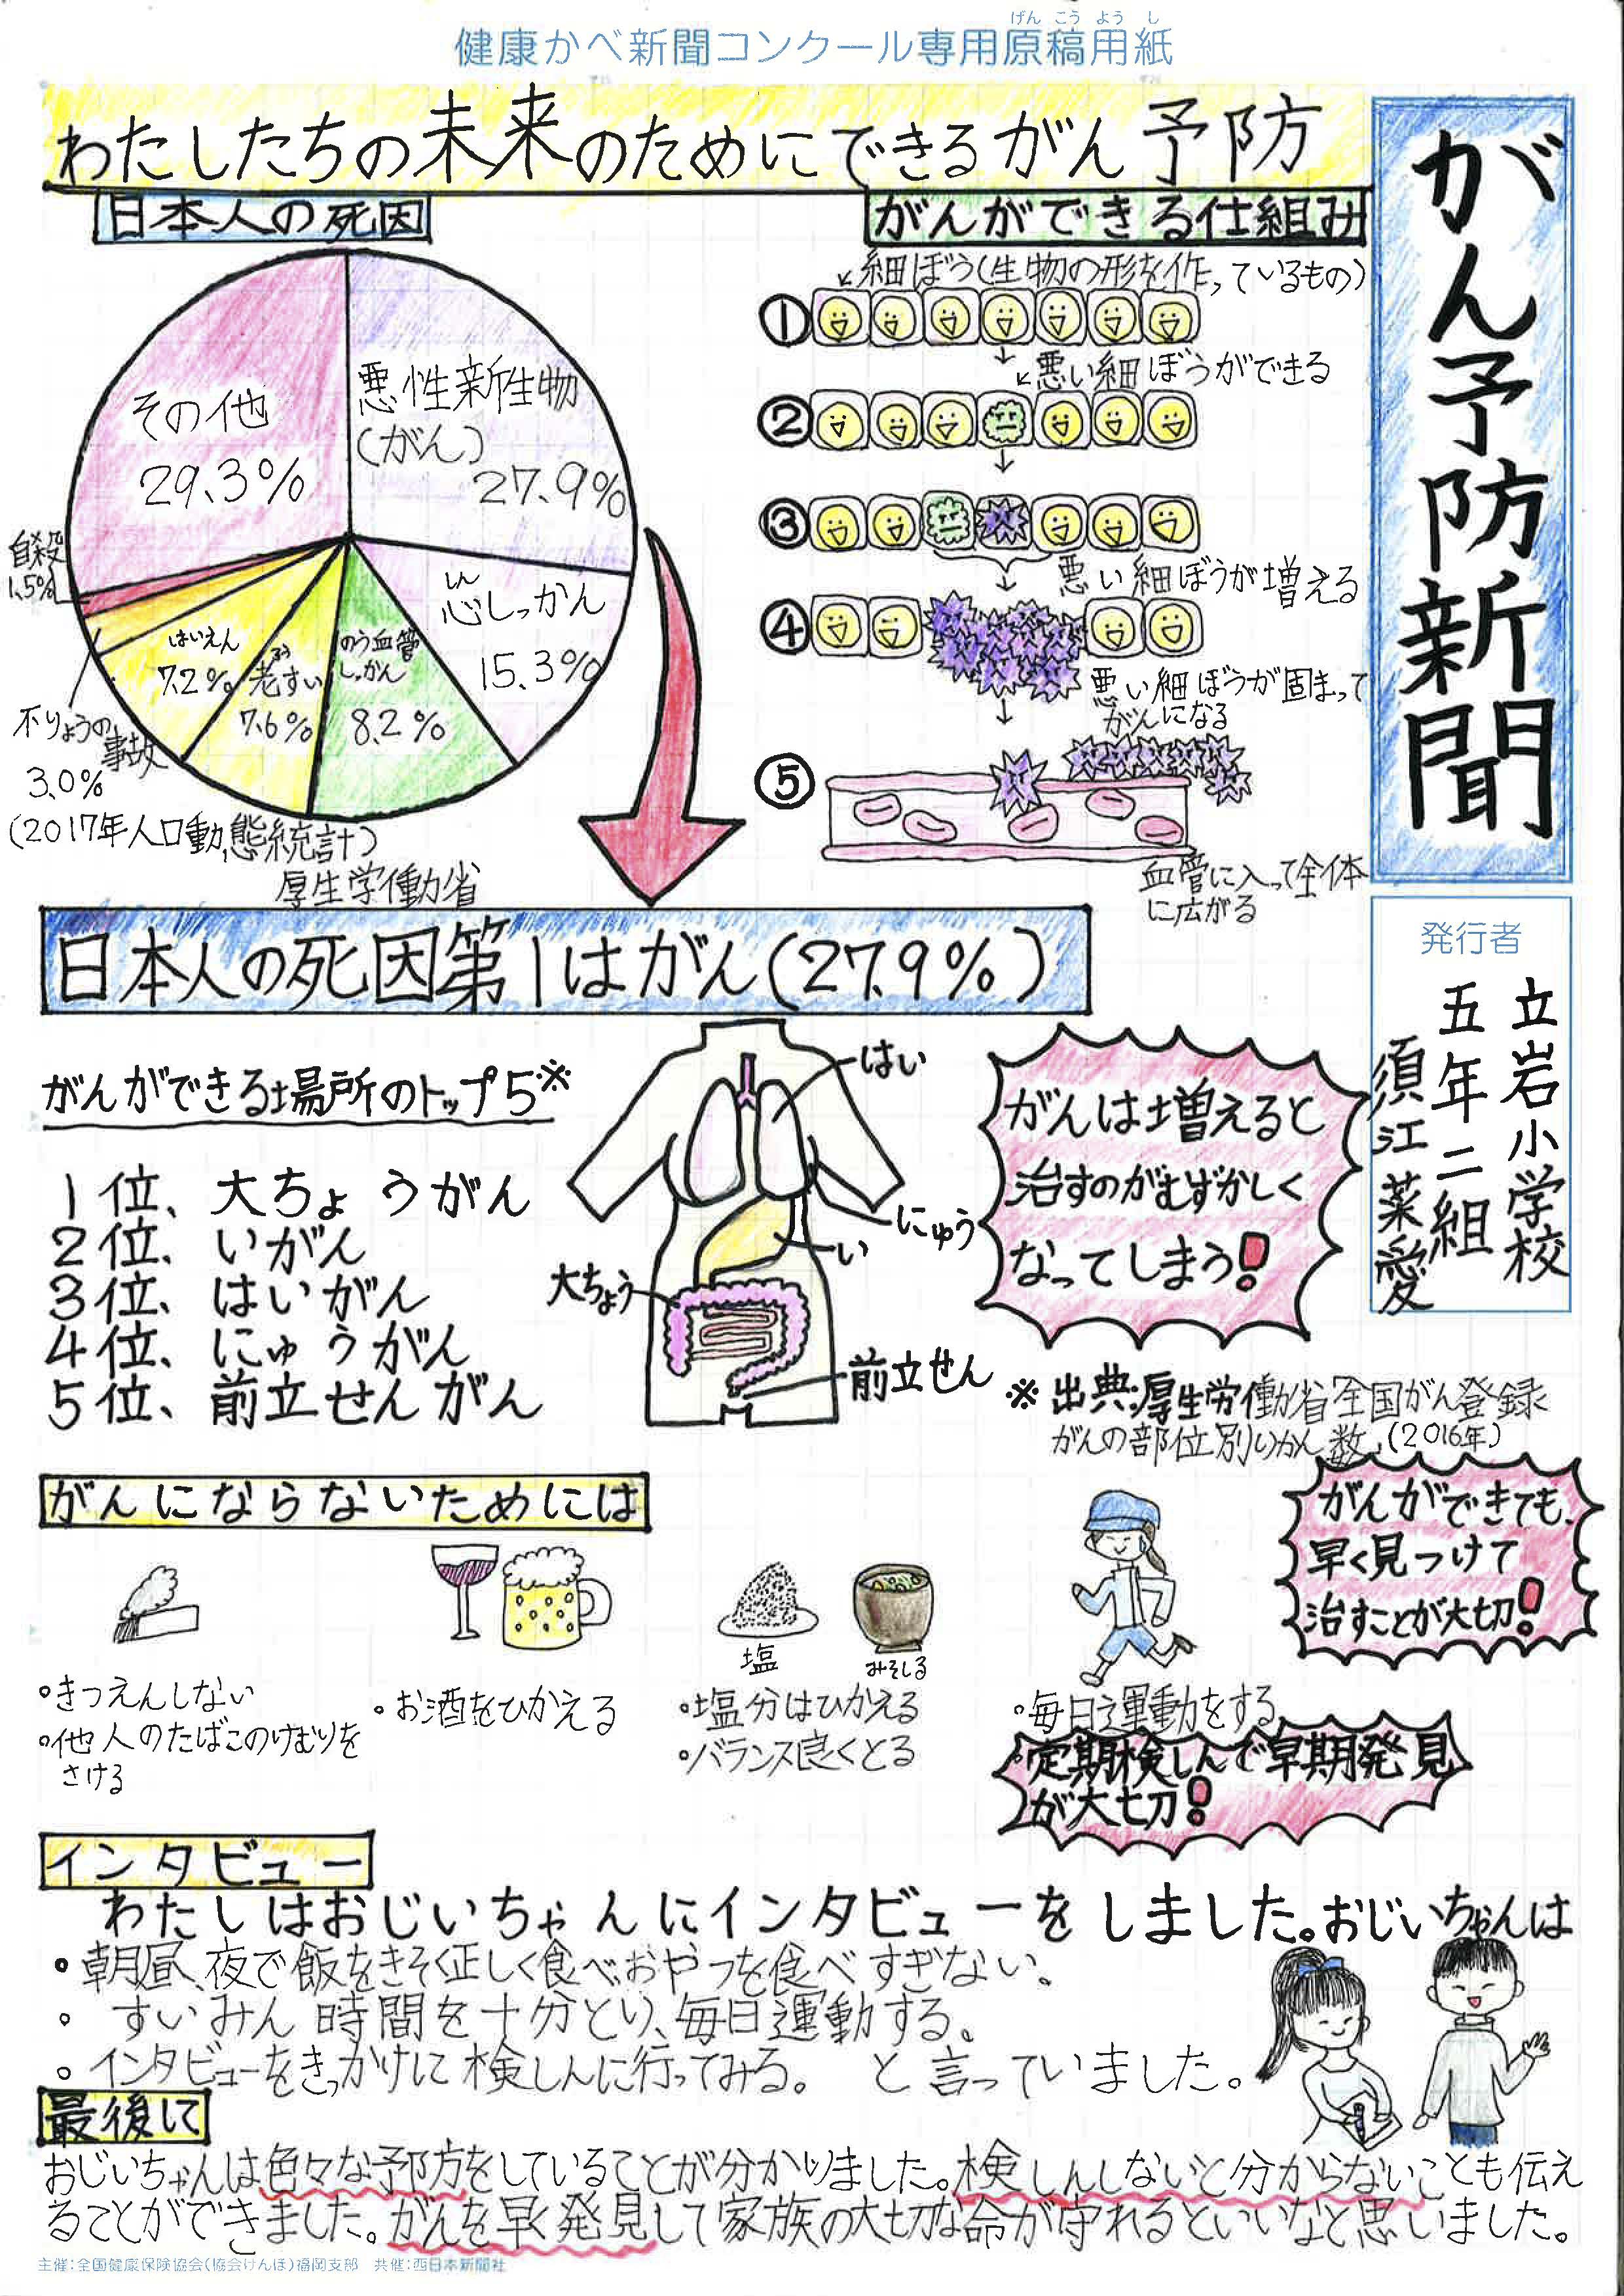 げんこうようし
健康かべ新聞コンクール専用原稿用紙
がん予防新聞
わたしたちの未来のためにできるがん予防
日本人の死因
悪性新生物
(がん)
27.9%
しん
心しっかん
15.3%
のう血管
しっかん
8.2%
ろう
老すい
7.6%
はいえん
7.2%
不りょうの
事故
3.0%
自殺
1.5%
その他
29.3%
(2017年人口動態統計)
厚生学働省
がんができる仕組み
↙細ぼう(生物の形を作っているもの)
①
↓
↙悪い細ぼうができる
②
↓
③
↓
悪い細ぼうが増える
④
↓
悪い細ぼうが固まって
がんになる
⑤
血管に入って全体
に広がる
発行者
立岩小学校
五年二組
須江菜愛
日本人の死因第1はがん(27.9%)
がんができる場所のトップ5※
1位、大ちょうがん
2位、いがん
3位、はいがん
4位、にゅうがん
5位、前立せんがん
はい
にゅう
い
大ちょう
前立せん
がんは増えると
治すのがむずかしく
なってしまう!
※出典:厚生労働省全国がん登録
がんの部位別りかん数、(2016年)
がんにならないためには
がんができても、
早く見つけて
治すことが大切!
・きつえんしない
・他人のたばこのけむりを
さける
・お酒をひかえる
塩
みそしる
・塩分はひかえる
・バランス良くとる
・毎日運動をする
・定期検しんで早期発見
が大切!
インタビュー
わたしはおじいちゃんにインタビューをしました。おじいちゃんは
・朝、昼、夜で飯をきそく正しく食べ、おやつを食べすぎない。
・すいみん時間を十分とり、毎日運動する。
・インタビューをきっかけに検しんに行ってみる。 と言っていました。
最後に
おじいちゃんは色々な予防をしていることが分かりました。検しんしないと分からないことも伝え
ることができました。がんを早く発見して家族の大切な命が守れるといいなと思いました。
主催:全国健康保険協会(協会けんぽ)福岡支部 共催:西日本新聞社